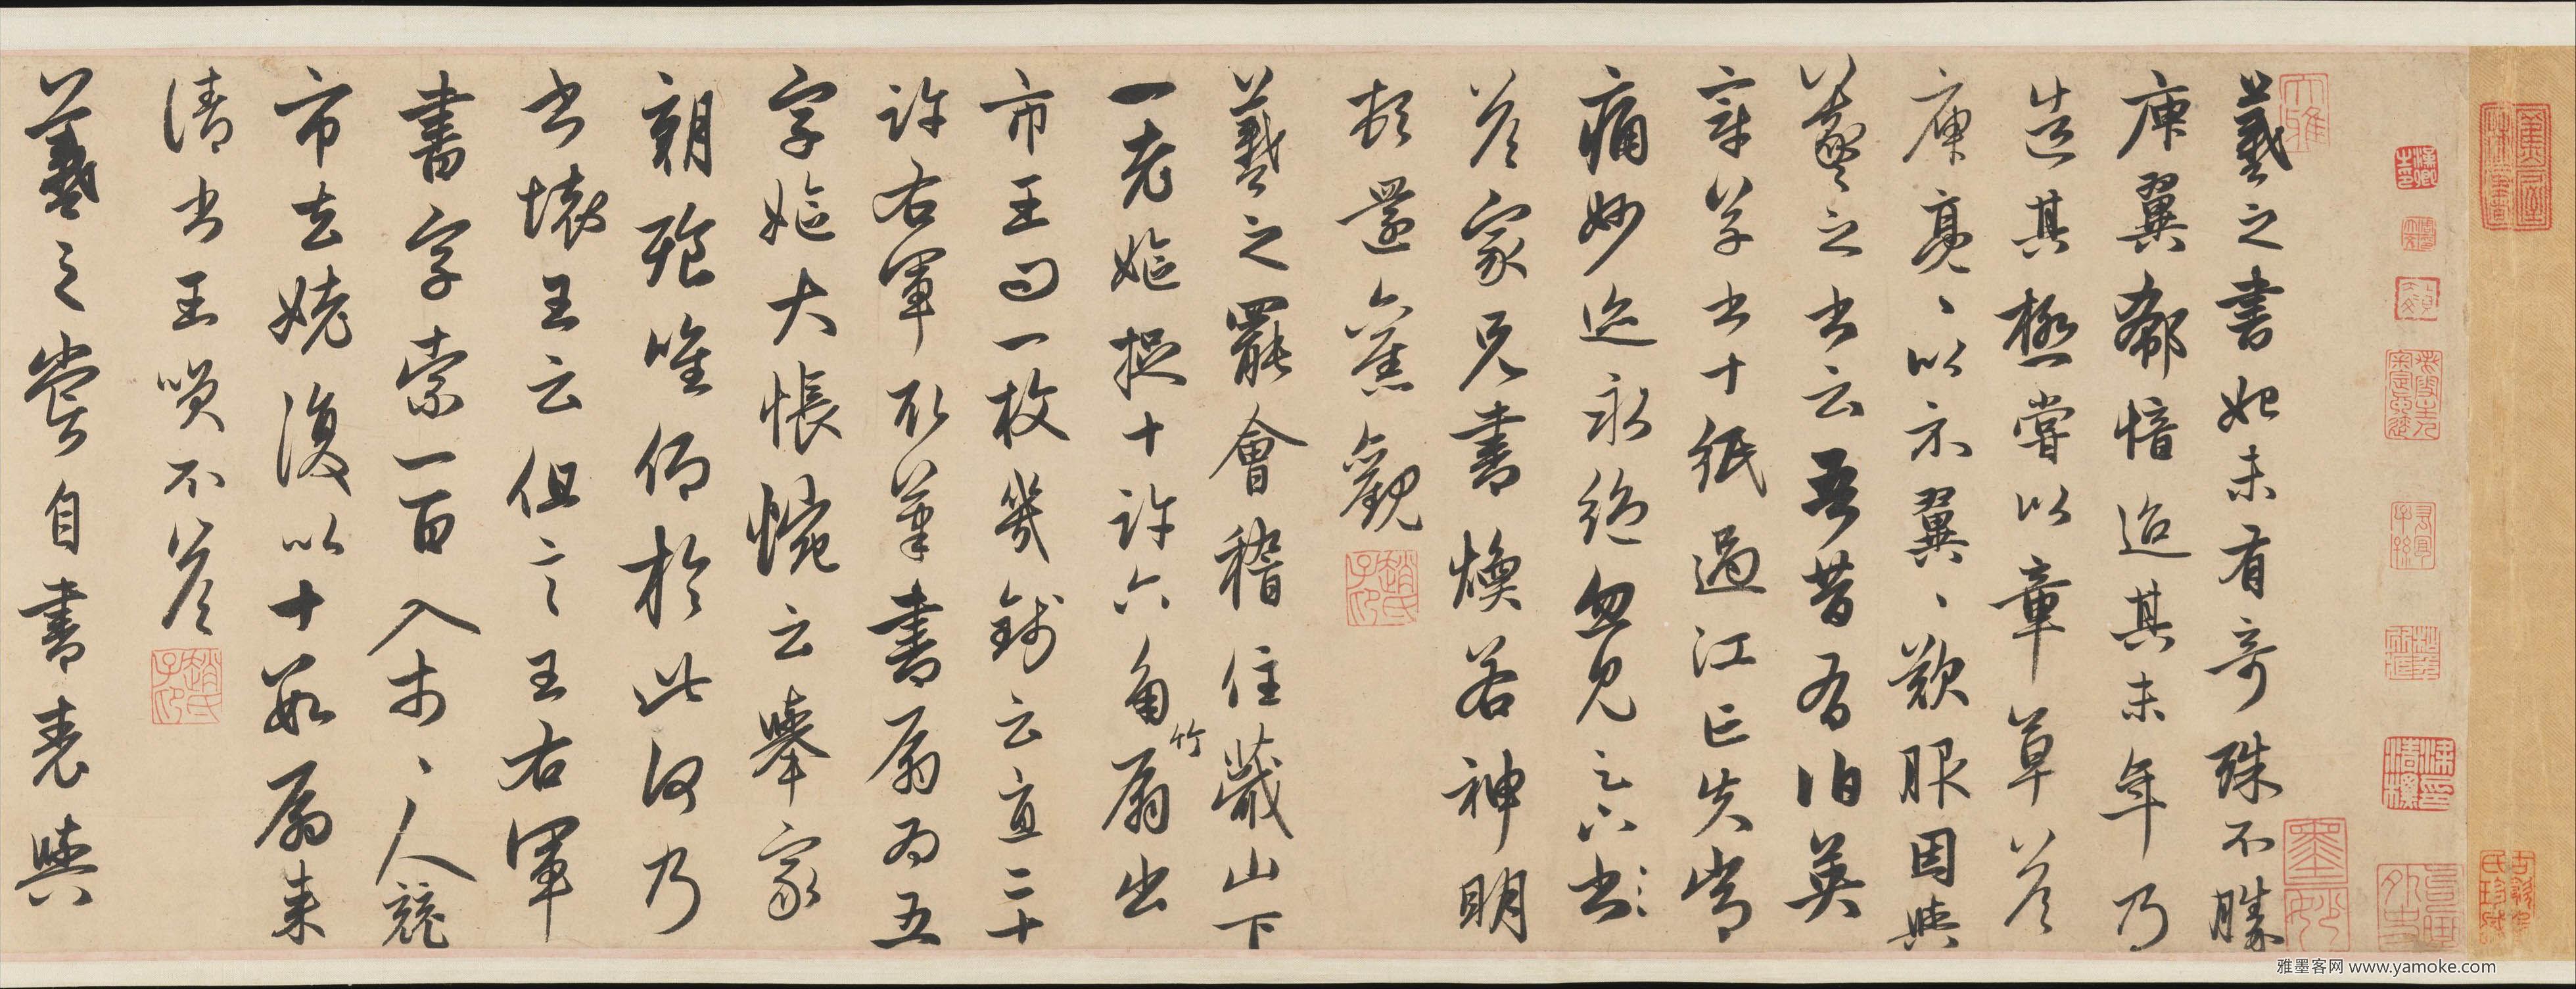 羲之書始未有奇殊不勝
庾翼郗愔迨其末年乃
造其極嘗以章草答
庾亮、以示翼、歎服因與
羲之書云吾昔有伯英
章草書十紙過江亡失常
痛妙迹永絕忽見足下書
答家兄書煥若神明
頓還舊觀
趙氏子昂
羲之罷會稽住蕺山下
一老嫗捉十許六角竹扇出
市王問一枚幾錢云直二十
許右軍取筆書扇為五
字嫗大悵惋云舉家
朝飡唯仰於此何乃
書壞王云但言王右軍
書字索一百入市、人競
市去姥復以十數扇來
請書王笑不答
趙氏子昂
羲之嘗自書表與
大雅
墨妙
雅墨客网 www.yamoke.com